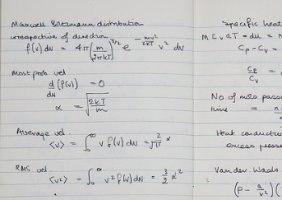 Maxwell Boltzmann distribution
irrespective of direction
f(v) dv = 4π (m/2πkT)^3/2 e^-mv²/2kT v² dv
Most prob vel
d/dv (f(v)) = 0
α = √2kT/m
Average vel
<v> = ∫₀^∞ v f(v) dv = 2/√π α
RMS vel
<v²> = ∫₀^∞ v² f(v) dv = 3/2 α²
Specific heat
M Cv dT = du =
Cp - Cv =
Cp/Cv =
No of mole
time =
Heat conduction
excess pressure
Van der Waals
(P - a/v²)(